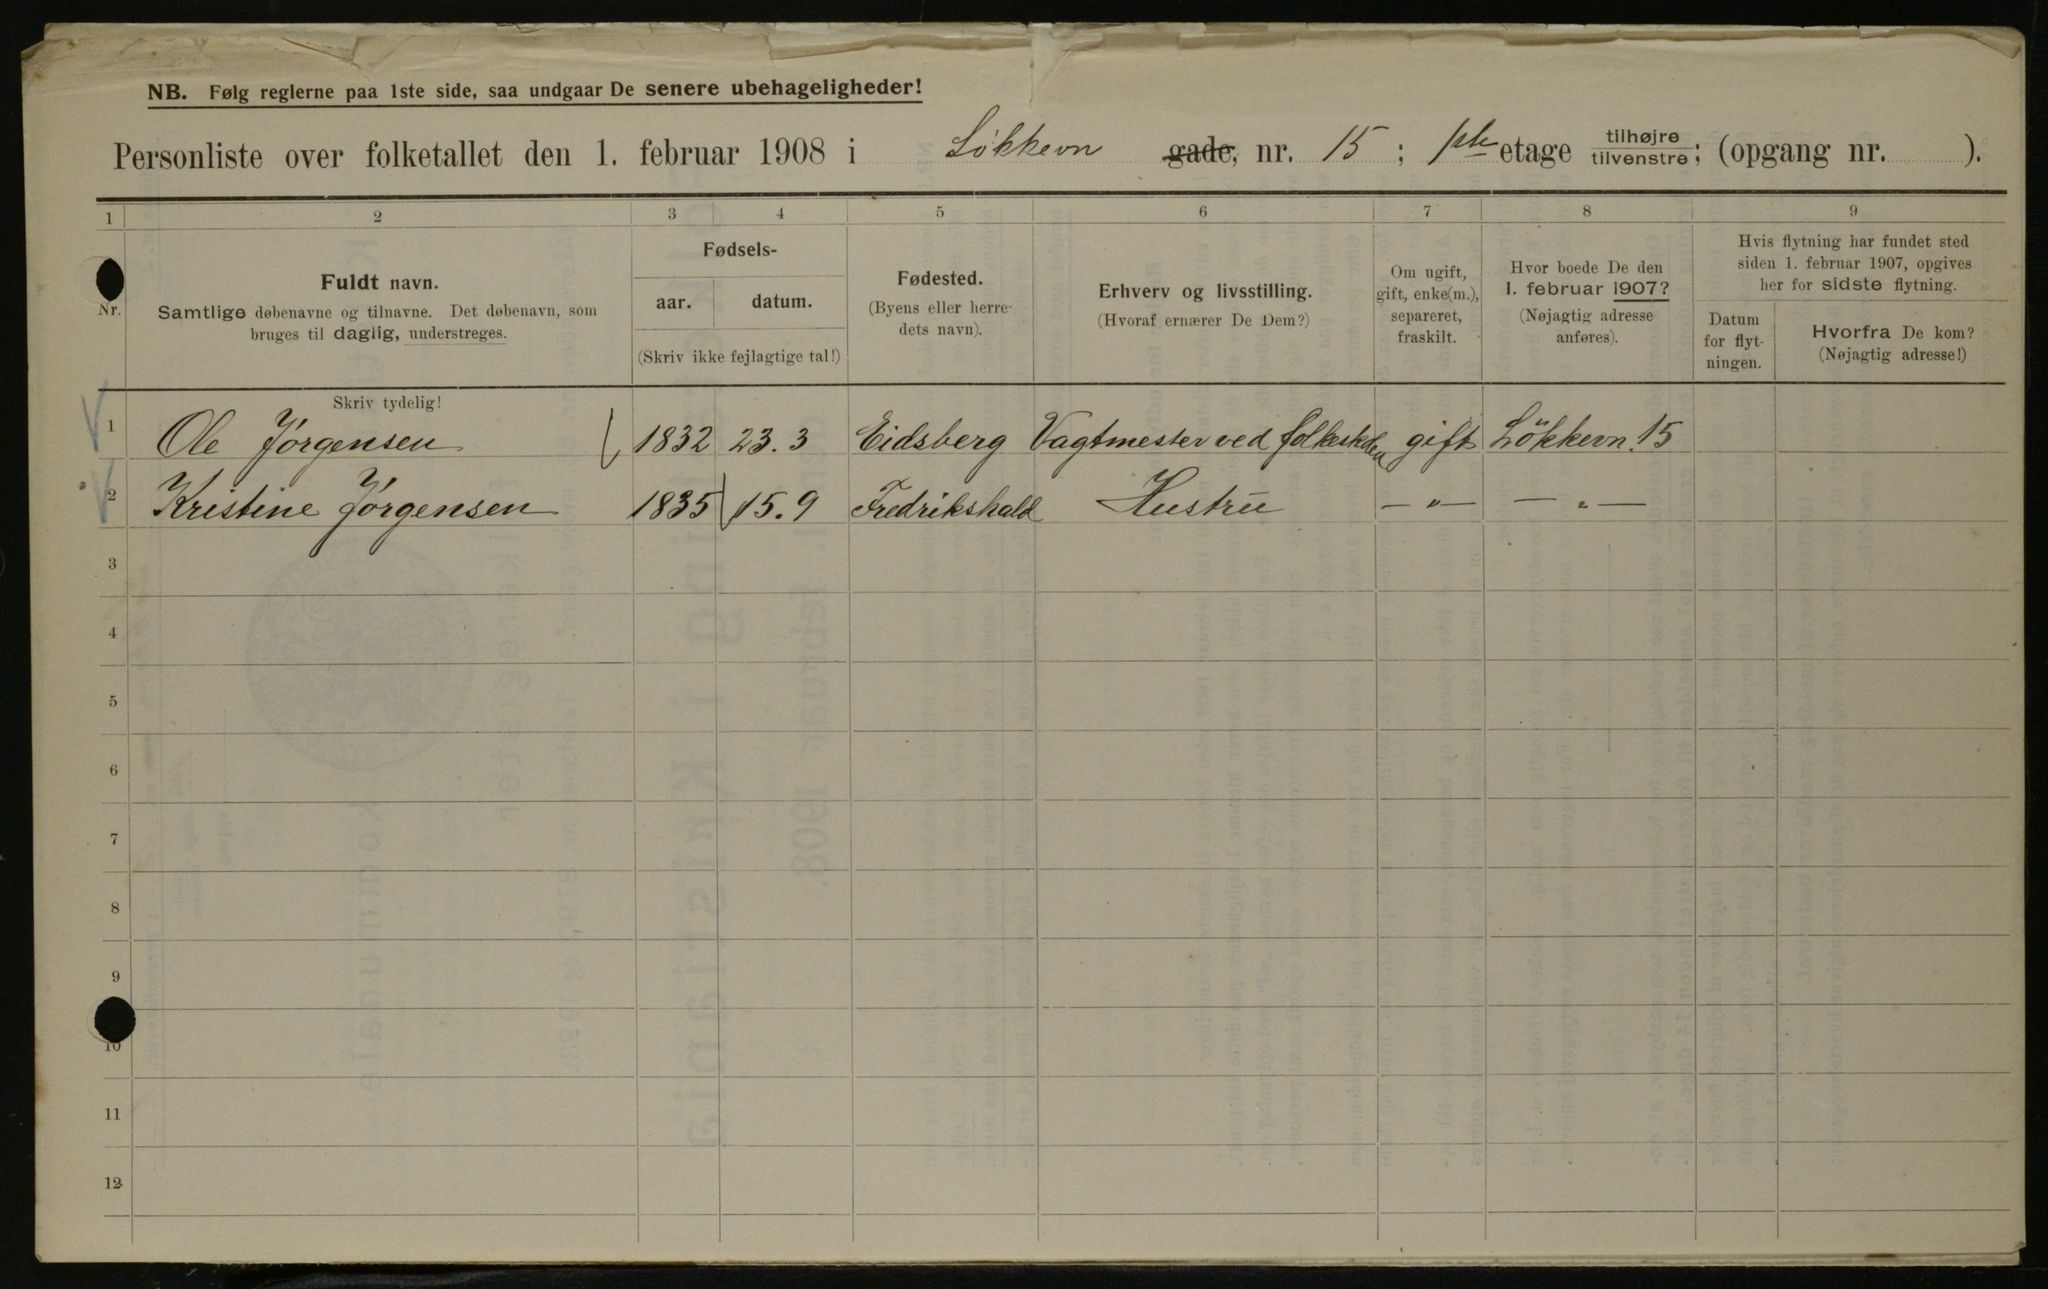 NB. Følg reglerne paa 1ste side, saa undgaar De senere ubehageligheder!
Personliste over folketallet den 1. februar 1908 i Løkkevn gade, nr. 15; 1ste etage tilhøjre/tilvenstre; (opgang nr. ).
1 2 3 4 5 6 7 8 9
Nr.
Fuldt navn.
Samtlige døbenavne og tilnavne. Det døbenavn, som
bruges til daglig, understreges.
Fødsels-
aar. datum.
(Skriv ikke fejlagtige tal!)
Fødested.
(Byens eller herre-
dets navn).
Erhverv og livsstilling.
(Hvoraf ernærer De Dem?)
Om ugift,
gift, enke(m.),
separeret,
fraskilt.
Hvor boede De den
1. februar 1907?
(Nøjagtig adresse
anføres).
Hvis flytning har fundet sted
siden 1. februar 1907, opgives
her for sidste flytning.
Datum
for flyt-
ningen.
Hvorfra De kom?
(Nøjagtig adresse!)
Skriv tydelig!
1 Ole Jørgensen 1832 23.3 Eidsberg Vagtmester ved folkeskolen gift Løkkevn. 15
2 Kristine Jørgensen 1835 15.9 Fredrikshald Hustru — „ — — „ —
3
4
5
6
7
8
9
10
11
12